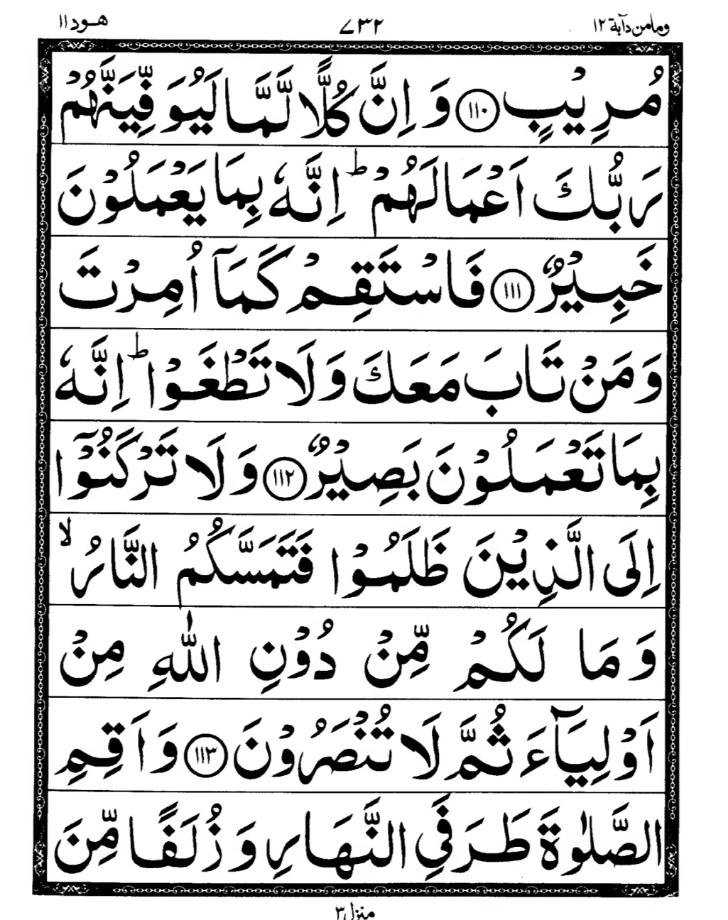 وما من دآبة ١٢ ٧٣٢ هود ١١
مُرِيْبٍ ﴿١١٠﴾ وَ اِنَّ كُلًّا لَّمَّا لَيُوَفِّيَنَّهُمْ
رَبُّكَ اَعْمَالَهُمْ ؕ اِنَّهٗ بِمَا يَعْمَلُوْنَ
خَبِيْرٌ ﴿١١١﴾ فَاسْتَقِمْ كَمَاۤ اُمِرْتَ
وَمَنْ تَابَ مَعَكَ وَلَا تَطْغَوْا ؕ اِنَّهٗ
بِمَا تَعْمَلُوْنَ بَصِيْرٌ ﴿١١٢﴾ وَلَا تَرْكَنُوْۤا
اِلَى الَّذِيْنَ ظَلَمُوْا فَتَمَسَّكُمُ النَّارُ ۙ
وَمَا لَكُمْ مِّنْ دُوْنِ اللّٰهِ مِنْ
اَوْلِيَآءَ ثُمَّ لَا تُنْصَرُوْنَ ﴿١١٣﴾ وَاَقِمِ
الصَّلٰوةَ طَرَفَيِ النَّهَارِ وَزُلَفًا مِّنَ
منزل ٣